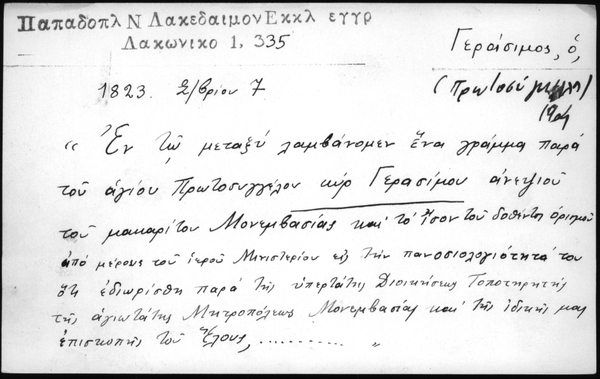 Παπαδοπλ Ν Λακεδαιμον Εκκλ εγγρ
Λακωνικο 1, 335
Γεράσιμος, ὁ,
(Πρωτοσύγκελλος)
1823. 7/βρίου 7
“ Ἐν τῷ μεταξύ λαμβάνομεν ἕνα γράμμα παρά
τοῦ ἁγίου Πρωτοσυγγέλου κύρ Γερασίμου ἀνεψιοῦ
τοῦ μακαρίτου Μονεμβασίας καί τό ἴσον τοῦ δοθέντος ὁρισμοῦ
ἀπό μέρους τοῦ ἱεροῦ Μινιστερίου εἰς τήν πανοσιολογιότητά του
ὅτι ἐδιωρίσθη παρά τῆς ὑπερτάτης Διοικήσεως Τοποτηρητής
τῆς ἁγιωτάτης Μητροπόλεως Μονεμβασίας καί τῆς ἰδικῆς μας
ἐπισκοπῆς τοῦ Ἕλους, .......... „